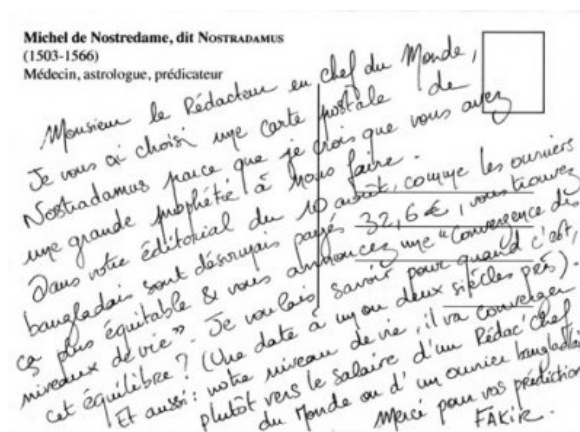 Michel de Nostredame, dit NOSTRADAMUS
(1503-1566)
Médecin, astrologue, prédicateur
Monsieur le Rédacteur en chef du Monde,
Je vous ai choisi une carte postale de
Nostradamus parce que je crois que vous avez
une grande prophétie à nous faire.
Dans votre éditorial du 10 août, comme les ouvriers
bangladais sont désormais payés 32,6 €, vous trouvez
ça plus équitable & vous annoncez une "convergence des
niveaux de vie". Je voulais savoir pour quand c'est,
cet équilibre ? (Une date à un ou deux siècles près).
Et aussi : votre niveau de vie, il va converger
plutôt vers le salaire d'un Rédac'chef
du Monde ou d'un ouvrier bangladais
Merci pour vos prédictions
FAKIR.